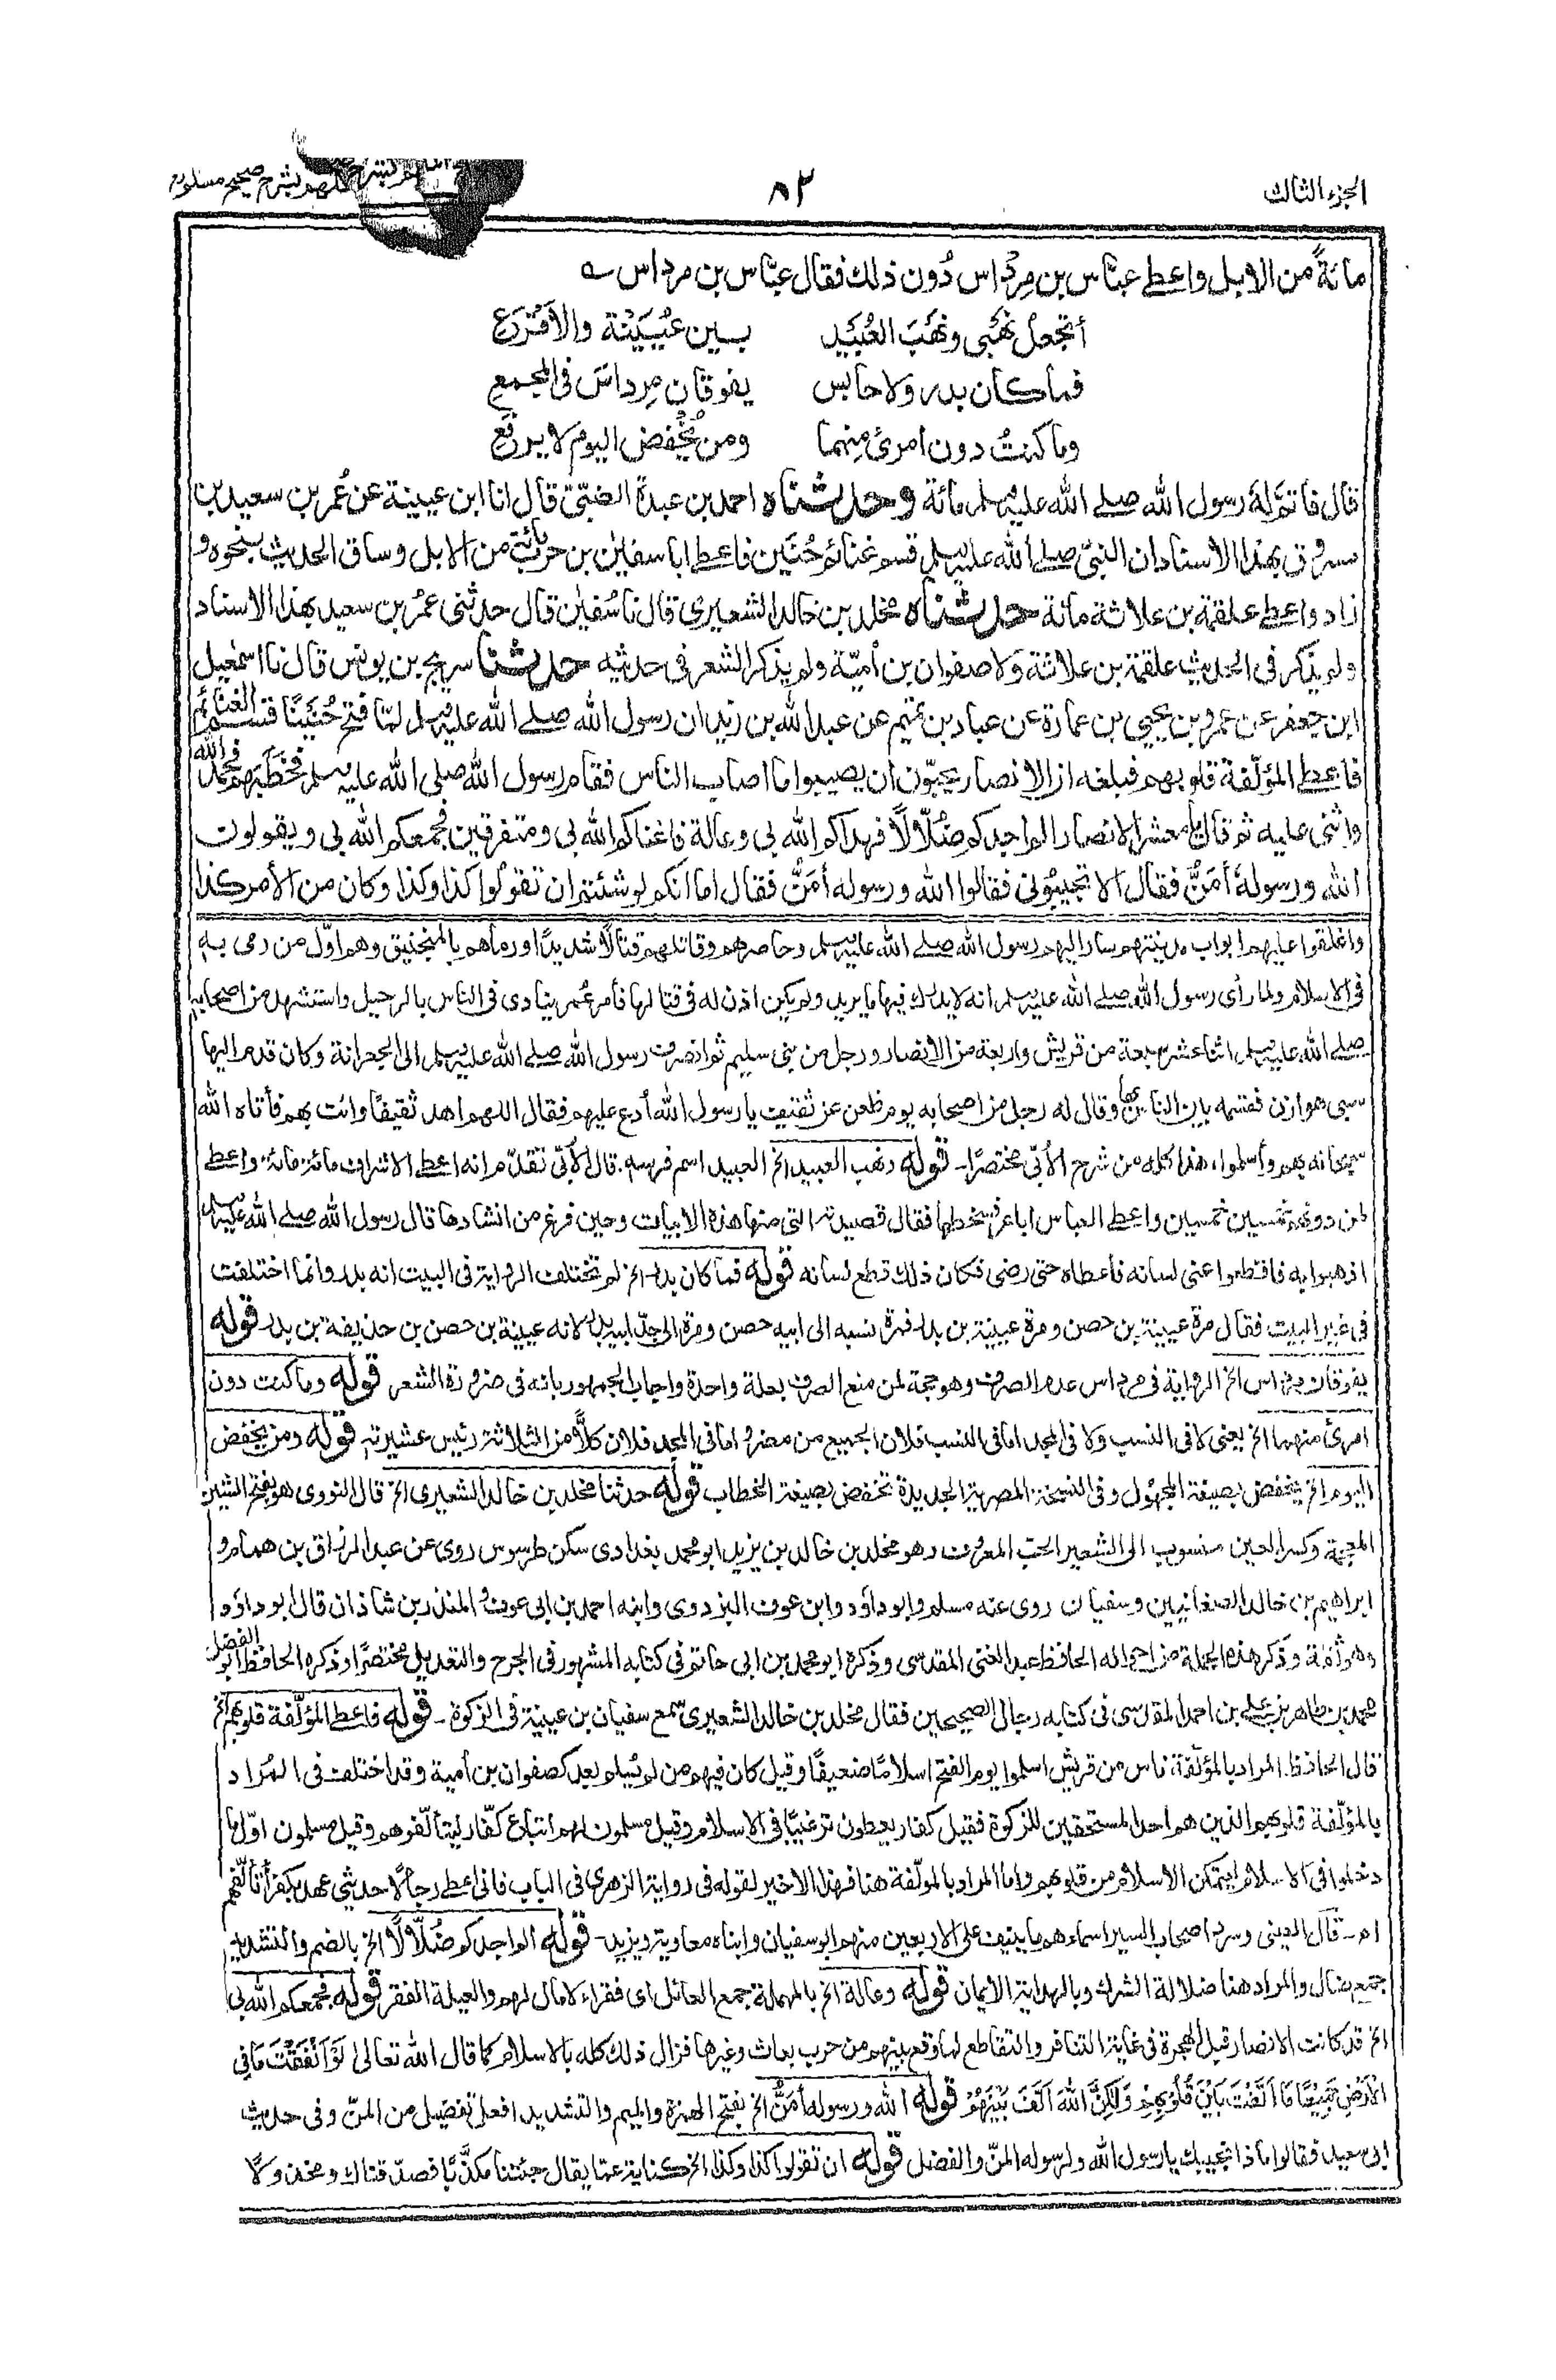 الجزء الثالث
٨٢
بشرح صحيح مسلم
مائةً من الابل واعطے عبّاس بن مِرْداس دُون ذلك فقال عبّاس بن مرداس ؎
أتجعلُ نَهْبى ونَهْبَ العُبَيْد بين عُيَيْنَة والأقْرَعِ
فما كان بدر ولا حابس يفوقانِ مِرداسَ فى المجمعِ
وما كنتُ دون امرئ مِنهما ومن تُخْفَضِ اليوم لا يرفَعِ
قال فاتَمَّ لهُ رسول الله صلے الله عليه وسلم مائة وحدثناه احمد بن عبدة الضبّىّ قال انا ابن عيينة عن عُمر بن سعيد بن
مسروق بهذا الاسناد ان النبىّ صلے الله عليه وسلم قسم غنائم حُنَين فاعطے ابا سفيٰن بن حرب مائة من الابل وساق الحديث بنحوه و
زاد واعطے علقمة بن علاثة مائة حدثناه مخلد بن خالد الشعيرى قال نا سُفيٰن قال حدثنى عُمر بن سعيد بهذا الاسناد
ولم يذكر فى الحديث علقمة بن علاثة ولا صفوان بن أميّة ولم يذكر الشعر فى حديثه حدثنا سريج بن يونس قال نا اسمٰعيل
ابن جعفر عن عمرو بن يحيى بن عمارة عن عباد بن تميم عن عبد الله بن زيد ان رسول الله صلے الله عليه وسلم لمّا فتح حُنَينًا قسم الغنائم
فاعطے المؤلّفة قلوبهم فبلغه ان الانصار يحبّون أن يصيبوا ما اصاب الناس فقام رسول الله صلى الله عليه وسلم فخطَبَهم فحمد الله
واثنى عليه ثم قال يا معشر الانصار الم اجدكم ضُلّالًا فهداكم الله بى وعالة فاغناكم الله بى ومتفرقين فجمعكم الله بى ويقولون
الله ورسولهُ أمَنُّ فقال الا تجيبُونى فقالوا الله ورسوله أمَنُّ فقال اما انكم لو شئتم ان تقولوا كذا وكذا وكان من الأمر كذا
واغلقوا عليهم ابواب مدينتهم سار اليهم رسول الله صلے الله عليه وسلم وحاصرهم وقاتلهم قتالًا شديدًا ورماهم بالمنجنيق وهو اوّل من رمى به
فى الاسلام ولما رأى رسول الله صلے الله عليه وسلم انه لا يدرك فيها ما يريد ولم يكن اذن له فى قتالها فأمر عمر ينادى فى الناس بالرحيل واستشهد من اصحابه
صلے الله عليه وسلم اثنا عشر سبعة من قريش واربعة من الانصار ورجل من بنى سليم ثم انصرف رسول الله صلے الله عليه وسلم الى الجعرانة وكان قدم اليها
سبى هوازن فقسمه بين الناس بها وقال له رجل من اصحابه يوم ظعن عن ثقيف يا رسول الله أدع عليهم فقال اللهم اهد ثقيفًا وائت بهم فأتاه الله
سبحانه بهم وأسلموا، هذا كله من شرح الأبّى مختصرًا۔ قوله ونهب العبيد الخ العبيد اسم فرسه. قال الأبّى تقدّم انه اعطے الاشراف مائة مائة واعطے
لمن دونهم خمسين خمسين واعطے العباس اباعر فسخطها فقال قصيدته التى منها هذه الابيات وحين فرغ من انشادها قال رسول الله صلے الله عليه وسلم
اذهبوا به فاقطعوا عنى لسانه فأعطاه حتى رضى فكان ذلك قطع لسانه قوله فما كان بدر الخ لم تختلف الرواية فى البيت انه بدر وانما اختلفت
فى غير البيت فقال مرة عيينة بن حصن ومرة عيينة بن بدر فمرة نسبه الى ابيه حصن ومرة الى جدّ ابيه بدر لانه عيينة بن حصن بن حذيفة بن بدر قوله
يفوقان مرداس الخ الرواية فى مرداس عدم الصرف وهو حجة لمن منع الصرف بعلة واحدة واجاب الجمهور بانه فى ضرورة الشعر قوله وما كنت دون
امرئ منهما الخ يعنى لا فى النسب ولا فى المجد اما فى النسب فلان الجميع من مضر واما فى المجد فلان كلًّا من الثلاثة رئيس عشيرته قوله ومن يخفض
اليوم الخ يخفض بصيغة المجهول وفى النسخة المصرية الجديدة تخفض بصيغة الخطاب قوله حدثنا مخلد بن خالد الشعيرى الخ قال النووى هو بفتح الشين
المعجمة وكسر العين منسوب الى الشعير الحب المعروف وهو مخلد بن خالد بن يزيد ابو محمد بغدادى سكن طرسوس روى عن عبد الرزاق بن همام و
ابراهيم بن خالد الصنعانيين وسفيان روى عنه مسلم وابو داؤد وابن عوف البزدوى وابنه احمد بن ابى عوف والمنذر بن شاذان قال ابو داؤد
وهو ثقة وذكر هذه الجملة من احواله الحافظ عبد الغنى المقدسى وذكره ابو محمد بن ابى حاتم فى كتابه المشهور فى الجرح والتعديل مختصرًا وذكره الحافظ ابو الفضل
محمد بن طاهر بن علے بن احمد المقدسى فى كتابه رجال الصحيحين فقال مخلد بن خالد الشعيرى سمع سفيان بن عيينة فى الزكوة۔ قوله فاعطے المؤلّفة قلوبهم الخ
قال الحافظ المراد بالمؤلفة، ناس من قريش اسلموا يوم الفتح اسلامًا ضعيفًا وقيل كان فيهم من لم يُسلم بعد كصفوان بن أمية وقد اختلف فى المُراد
بالمؤلّفة قلوبهم الذين هم احد المستحقين للزكوة فقيل كفار يعطون ترغيبًا فى الاسلام وقيل مسلمون لهم اتباع كفّار ليتألّفوهم وقيل مسلمون اوّل ما
دخلوا فى الاسلام ليتمكن الاسلام من قلوبهم واما المراد بالمؤلّفة هنا فهذا الاخير لقوله فى رواية الزهرى فى الباب فانى اعطے رجالًا حديثى عهد بكفر أتألّفهم
اھ۔ قال العينى وسرد اصحاب السير اسماءهم ما ينيف على الاربعين منهم ابو سفيان وابناه معاوية ويزيد۔ قوله الم اجدكم ضُلّالًا الخ بالضم والتشديد
جمع ضال والمراد هنا ضلالة الشرك وبالهداية الأيمان قوله وعالة الخ بالمهملة جمع العائل اى فقراء لا مال لهم والعيلة الفقر قوله فجمعكم الله بى
الخ قد كانت الانصار قبل الهجرة فى غاية التنافر والتقاطع لما وقع بينهم من حرب بعاث وغيرها فزال ذلك كله بالاسلام كما قال الله تعالى لَوْ اَنْفَقْتَ مَا فِى
الْاَرْضِ جَمِيْعًا مَّا اَلَّفْتَ بَيْنَ قُلُوْبِهِمْ وَلٰكِنَّ اللّٰهَ اَلَّفَ بَيْنَهُمْ قوله الله ورسوله أمَنُّ الخ بفتح الهمزة والميم والتشديد افعل تفضيل من المنّ وفى حديث
ابى سعيد فقالوا ماذا نجيبك يا رسول الله ولرسوله المنّ والفضل قوله ان تقولوا كذا وكذا الخ كناية عما يقال جئتنا مكذَّبًا فصدّقناك ومخذولًا